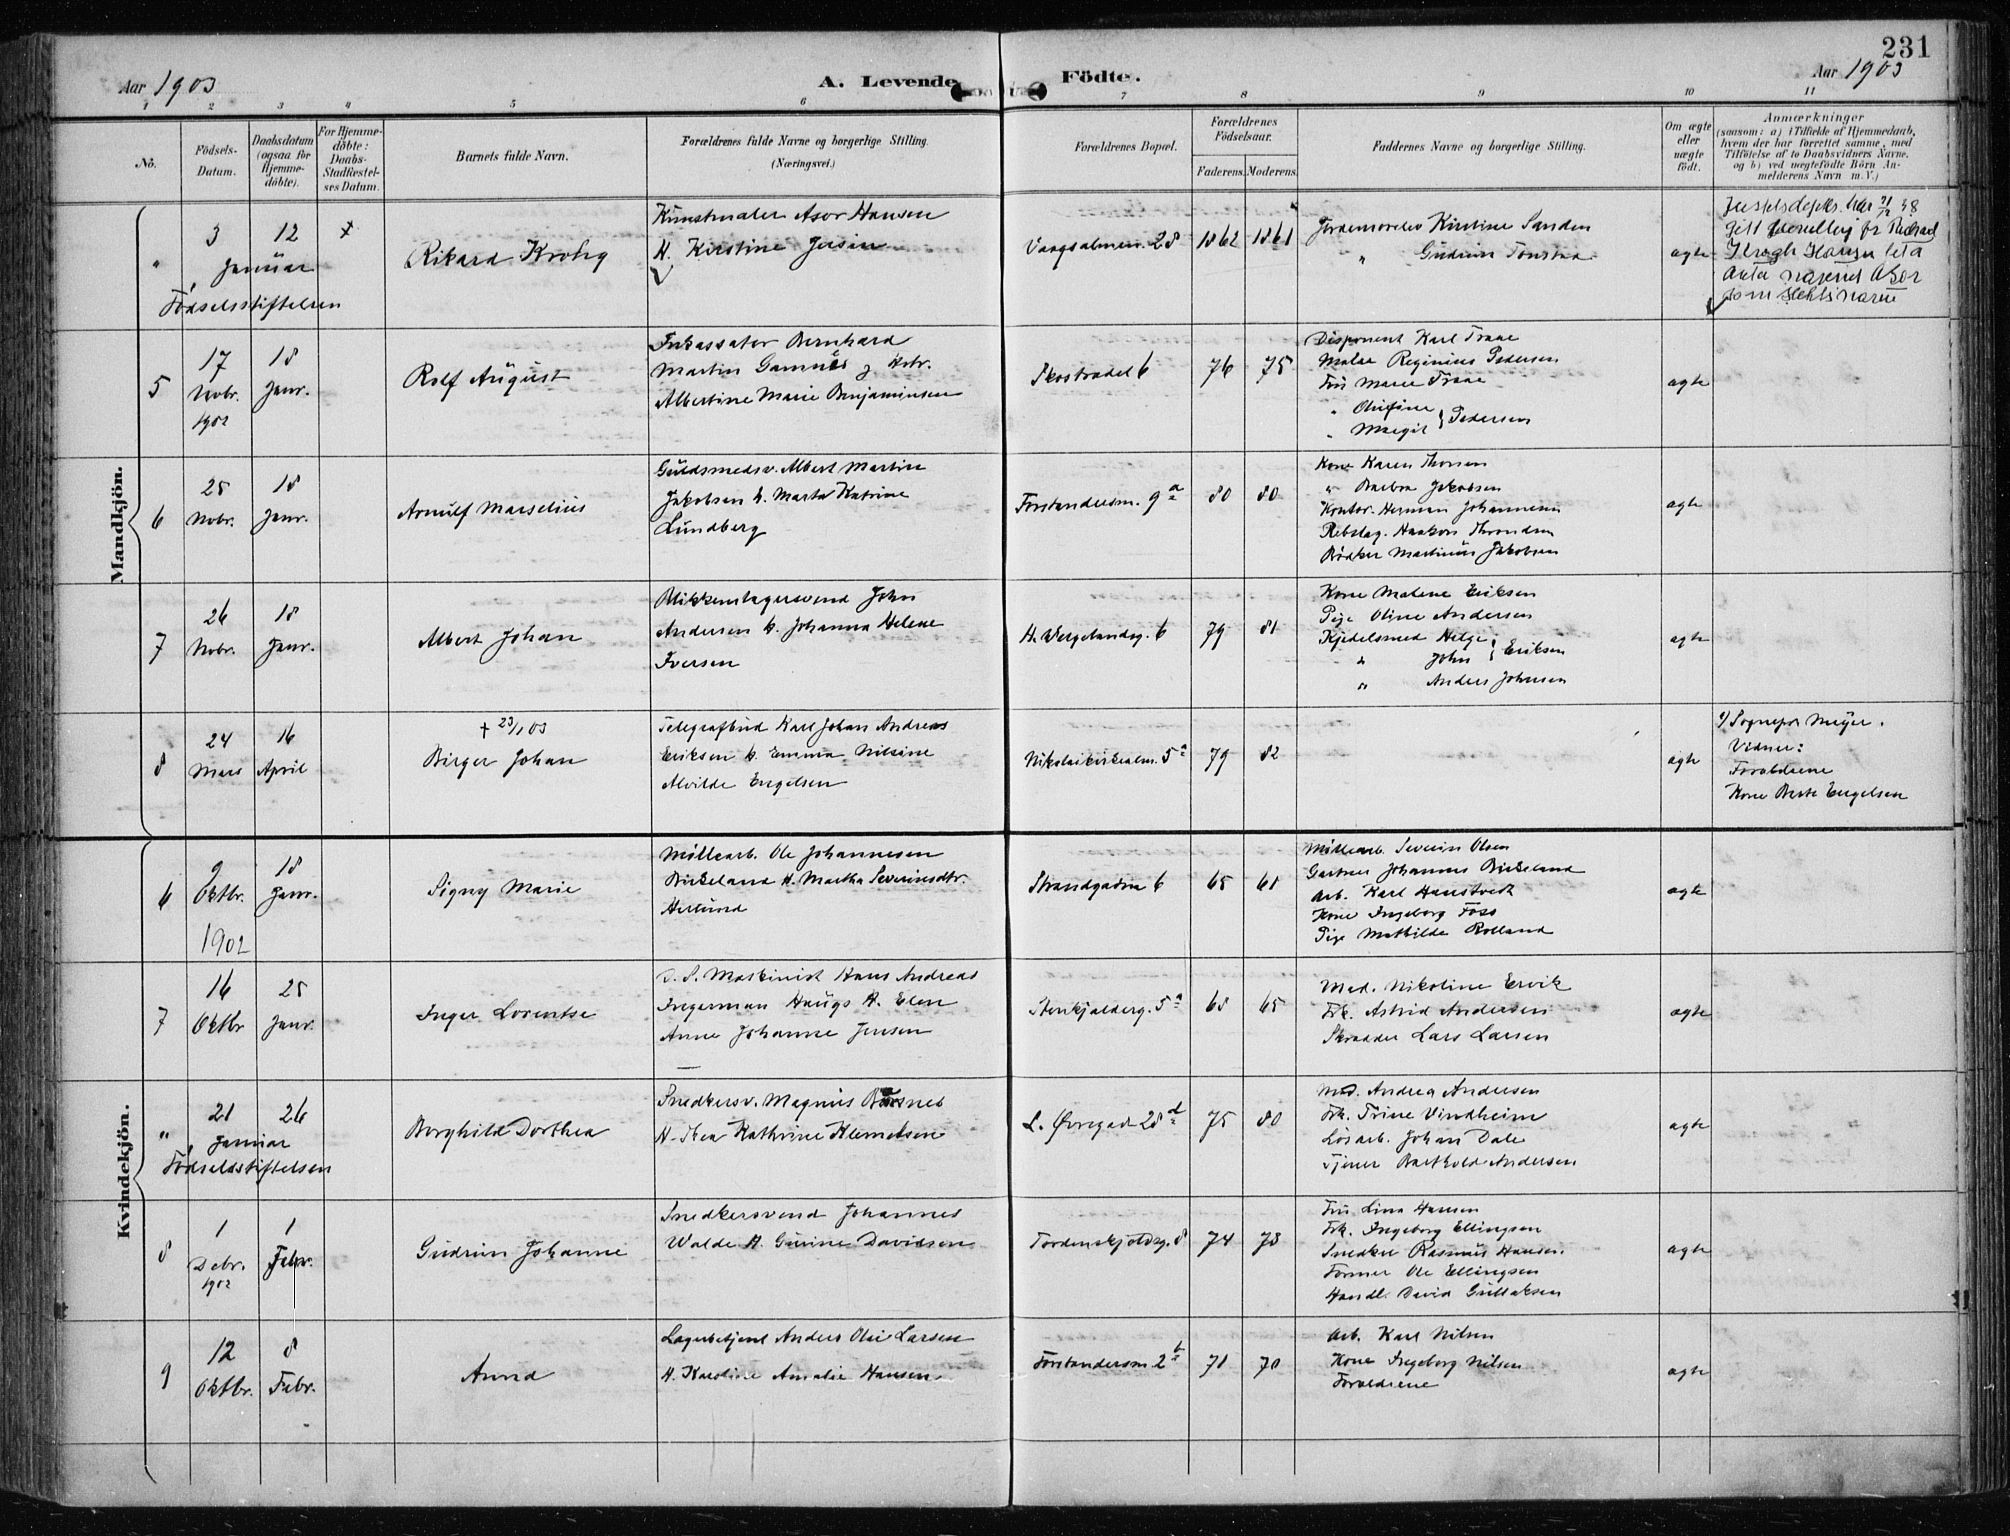 231
Aar 1903
A. Levende Födte.
Aar 1903
1 2 3 4 5 6 7 8 9 10 11
No.
Födsels-
Datum.
Daabsdatum
(ogsaa for
Hjemme-
döbte).
For Hjemme-
döbte:
Daabs-
Stadfæstel-
ses Datum.
Barnets fulde Navn.
Forældrenes fulde Navne og borgerlige Stilling.
(Næringsvei.)
Forældrenes Bopæl.
Forældrenes
Födselsaar.
Faderens. Moderens.
Faddernes Navne og borgerlige Stilling.
Om ægte
eller
uægte
født.
Anmærkninger
(saasom: a) i Tilfælde af Hjemmedaab,
hvem der har forrettet samme, med
Tilföielse af to Daabsvidners Navne,
og b) ved uægtefödte Börn An-
melderens Navn m. V.)
Mandkjön.
"
3 12
Januar
Födselsstiftelsen
Rikard Krohg
Kunstmaler Asor Hansen
H. Kirstine Jensen
Vaagsalmen. 28
1862 1861
Jordemorelev Kirstine Sanden
" Gudrun Tonstad
ægte
Justisdepts. har 21/12 38
gitt bevilling for Rickard
Krogh Hansen til å
anta navnet Asor
som slektsnavn
5
17 18
Novbr. Janr.
1902
Rolf August
Inkassator Bernhard
Martin Gamnes g Hstr.
Albertine Marie Benjaminsen
Skostrædet 6
76 75
Disponent Karl Traae
Maler Reginius Pedersen
Fru Marie Traae
" Olufine
" Margit } Pedersen
ægte
6
25 18
Novbr. Janr.
Arnulf Marselius
Guldsmedsv. Albert Martin
Jakobsen h. Marta Katrine
Lundberg
Forstandersm. 9 a
80 80
Kone Karen Thorsen
" Barbra Jakobsen
Kontor. Herman Johannesen
Rebslag. Haakon Thorndsen
Bödker Martinus Jakobsen
ægte
7
26 18
Novbr. Janr.
Albert Johan
Blikkenslagersvend John
Andersen h. Johanna Helene
Iversen
H. Vergelandsg. 6
79 81
Kone Malene Eriksen
Pige Oline Andersen
Kjedelsmed Helge
" John } Eriksen
" Anders Johnsen
ægte
8
24 16
Mars April
+ 23/1 03
Birger Johan
Telegrafbud Karl Johan Andreas
Eriksen h. Emma Nilsine
Alvilde Engelsen
Nikolaikirkealm. 5 a
79 82
ægte
a/ Sognepr Meyer.
Vidner:
Forældrene
Kone Berte Engelsen
Kvindekjön.
6
9 18
Oktbr. Janr.
1902
Signy Marie
Möllearb. Ole Johannesen
Birkeland H. Martha Severinsdtr.
Herlund
Strandgaden 6
65 61
Möllearb. Severin Olsen
Gartner Johannes Birkeland
Arb. Karl Haustvedt
Kone Ingeborg Foss
Pige Mathilde Rolland
ægte
7
16 25
Oktbr Janr.
Inger Lorentse
D. S. Maskinist Hans Andreas
Ingerman Haugs H. Elen
Anne Johanne Jensen
Stenkjælderg. 5 a
68 65
Mad. Nikoline Ervik
Frk. Astrid Andersen
Skrædder Lars Larsen
ægte
"
21 26
Januar
Födselsstiftelsen
Borghild Dorthea
Snedkersv. Magnus
H. Thea Kathrine Klemetsen
L. Övregad. 28 d
75 80
Mad. Andrea Andersen
Frk. Trine Vindheim
Lösarb. Johan Dale
Tjener Barthold Andersen
ægte
8
1 1
Debr. Febr.
1902
Gudrun Johanne
Snedkersvend Johannes
Walde H. Gurine Davidsen
Tordenskjoldsg. 8
74 78
Fru Lina Hansen
Frk. Ingeborg Ellingsen
Snedker Rasmus Hansen.
Former Ole Ellingsen
Handl. David Gullaksen
ægte
9
12 8
Oktbr. Febr.
Arnvid
Lagerbetjent Anders Olai Larsen
H. Karoline Amalie Hansen.
Forstandersm. 2 b
71 70
Arb. Karl Nilsen
Kone Ingeborg Nilsen
Forældrene
ægte